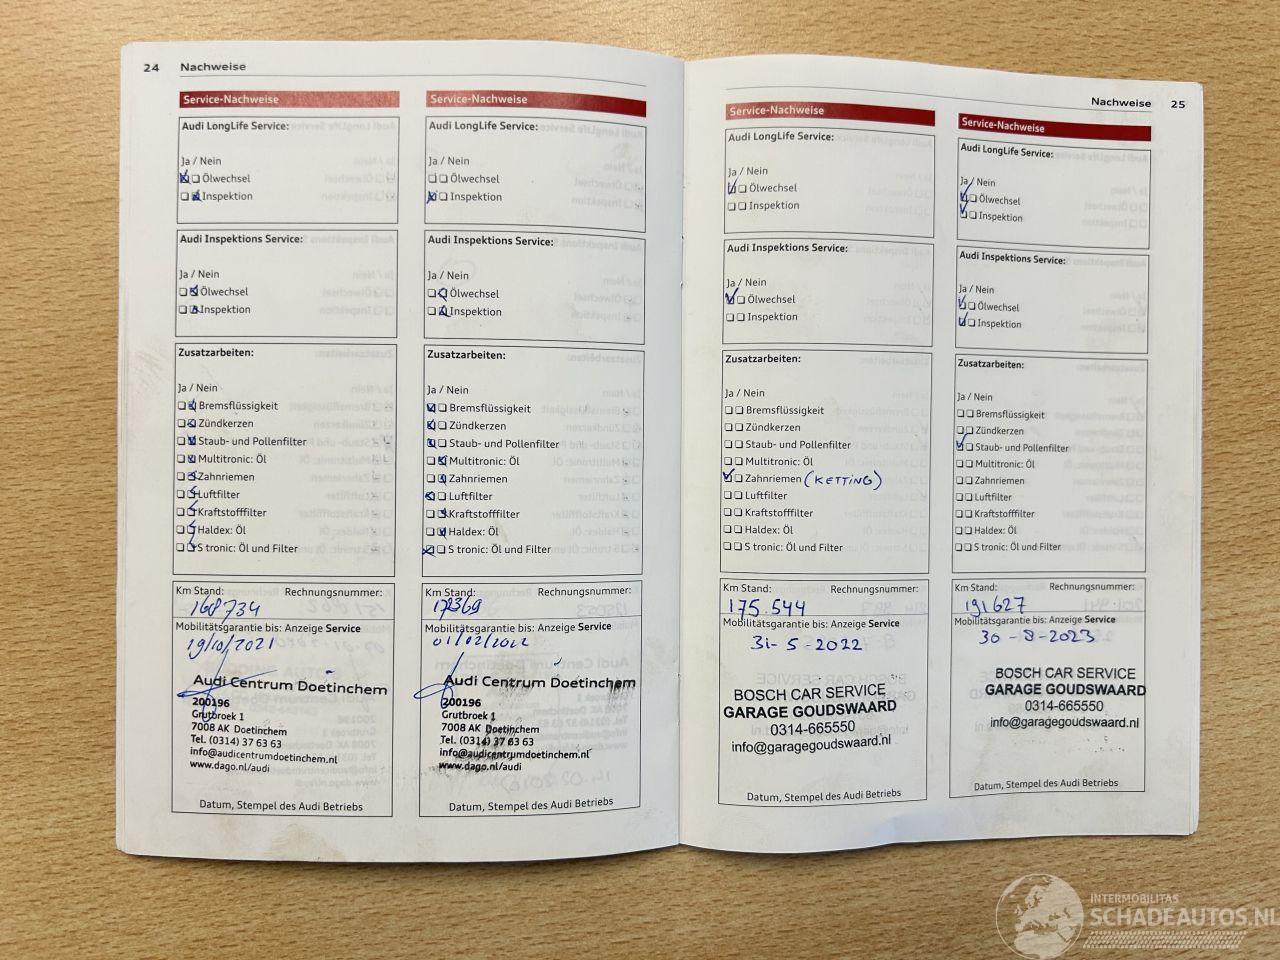 24 Nachweise
Service-Nachweise
Audi LongLife Service:
Ja / Nein
Ölwechsel
Inspektion
Audi Inspektions Service:
Ja / Nein
Ölwechsel
Inspektion
Zusatzarbeiten:
Ja / Nein
Bremsflüssigkeit
Zündkerzen
Staub- und Pollenfilter
Multitronic: Öl
Zahnriemen
Luftfilter
Kraftstofffilter
Haldex: Öl
S tronic: Öl und Filter
Km Stand: Rechnungsnummer:
168734
Mobilitätsgarantie bis: Anzeige Service
19/10/2021
Audi Centrum Doetinchem
200196
Grutbroek 1
7008 AK Doetinchem
Tel. (0314) 37 63 63
info@audicentrumdoetinchem.nl
www.dago.nl/audi
Datum, Stempel des Audi Betriebs
Service-Nachweise
Audi LongLife Service:
Ja / Nein
Ölwechsel
Inspektion
Audi Inspektions Service:
Ja / Nein
Ölwechsel
Inspektion
Zusatzarbeiten:
Ja / Nein
Bremsflüssigkeit
Zündkerzen
Staub- und Pollenfilter
Multitronic: Öl
Zahnriemen
Luftfilter
Kraftstofffilter
Haldex: Öl
S tronic: Öl und Filter
Km Stand: Rechnungsnummer:
Mobilitätsgarantie bis: Anzeige Service
01/02/2022
Audi Centrum Doetinchem
200196
Grutbroek 1
7008 AK Doetinchem
Tel. (0314) 37 63 63
info@audicentrumdoetinchem.nl
www.dago.nl/audi
Datum, Stempel des Audi Betriebs
Nachweise 25
Service-Nachweise
Audi LongLife Service:
Ja / Nein
Ölwechsel
Inspektion
Audi Inspektions Service:
Ja / Nein
Ölwechsel
Inspektion
Zusatzarbeiten:
Ja / Nein
Bremsflüssigkeit
Zündkerzen
Staub- und Pollenfilter
Multitronic: Öl
Zahnriemen (KETTING)
Luftfilter
Kraftstofffilter
Haldex: Öl
S tronic: Öl und Filter
Km Stand: Rechnungsnummer:
175.544
Mobilitätsgarantie bis: Anzeige Service
31-5-2022
BOSCH CAR SERVICE
GARAGE GOUDSWAARD
0314-665550
info@garagegoudswaard.nl
Datum, Stempel des Audi Betriebs
Service-Nachweise
Audi LongLife Service:
Ja / Nein
Ölwechsel
Inspektion
Audi Inspektions Service:
Ja / Nein
Ölwechsel
Inspektion
Zusatzarbeiten:
Ja / Nein
Bremsflüssigkeit
Zündkerzen
Staub- und Pollenfilter
Multitronic: Öl
Zahnriemen
Luftfilter
Kraftstofffilter
Haldex: Öl
S tronic: Öl und Filter
Km Stand: Rechnungsnummer:
191627
Mobilitätsgarantie bis: Anzeige Service
30-8-2023
BOSCH CAR SERVICE
GARAGE GOUDSWAARD
0314-665550
info@garagegoudswaard.nl
Datum, Stempel des Audi Betriebs
INTERMOBILITAS
SCHADEAUTOS.NL